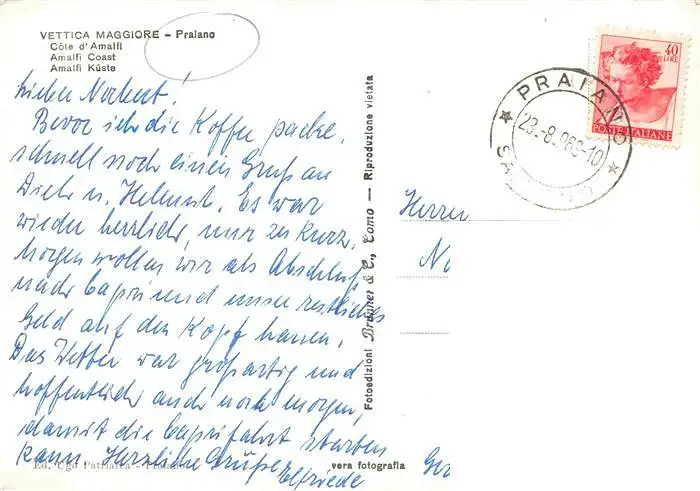 VETTICA MAGGIORE – Praiano
Côte d'Amalfi
Amalfi Coast
Amalfi Küste
Lieber Norbert!
Bevor ich die Koffer packe,
schnell noch einen Gruß an
Dich u. Helmut. Es war
wieder herrlich, nur zu kurz.
Morgen wollen wir als Abschluß
nach Capri und unser restliches
Geld auf den Kopf hauen.
Das Wetter war großartig und
hoffentlich auch noch morgen,
damit die Caprifahrt starten
kann. Herzliche Grüße
Elfriede
Ed. Ugo
vera fotografia
Fotoedizioni Brunner & C., Como — Riproduzione vietata
40
LIRE
POSTE ITALIANE
PRAIANO
23.-8.963-10
Herrn
No
Ger